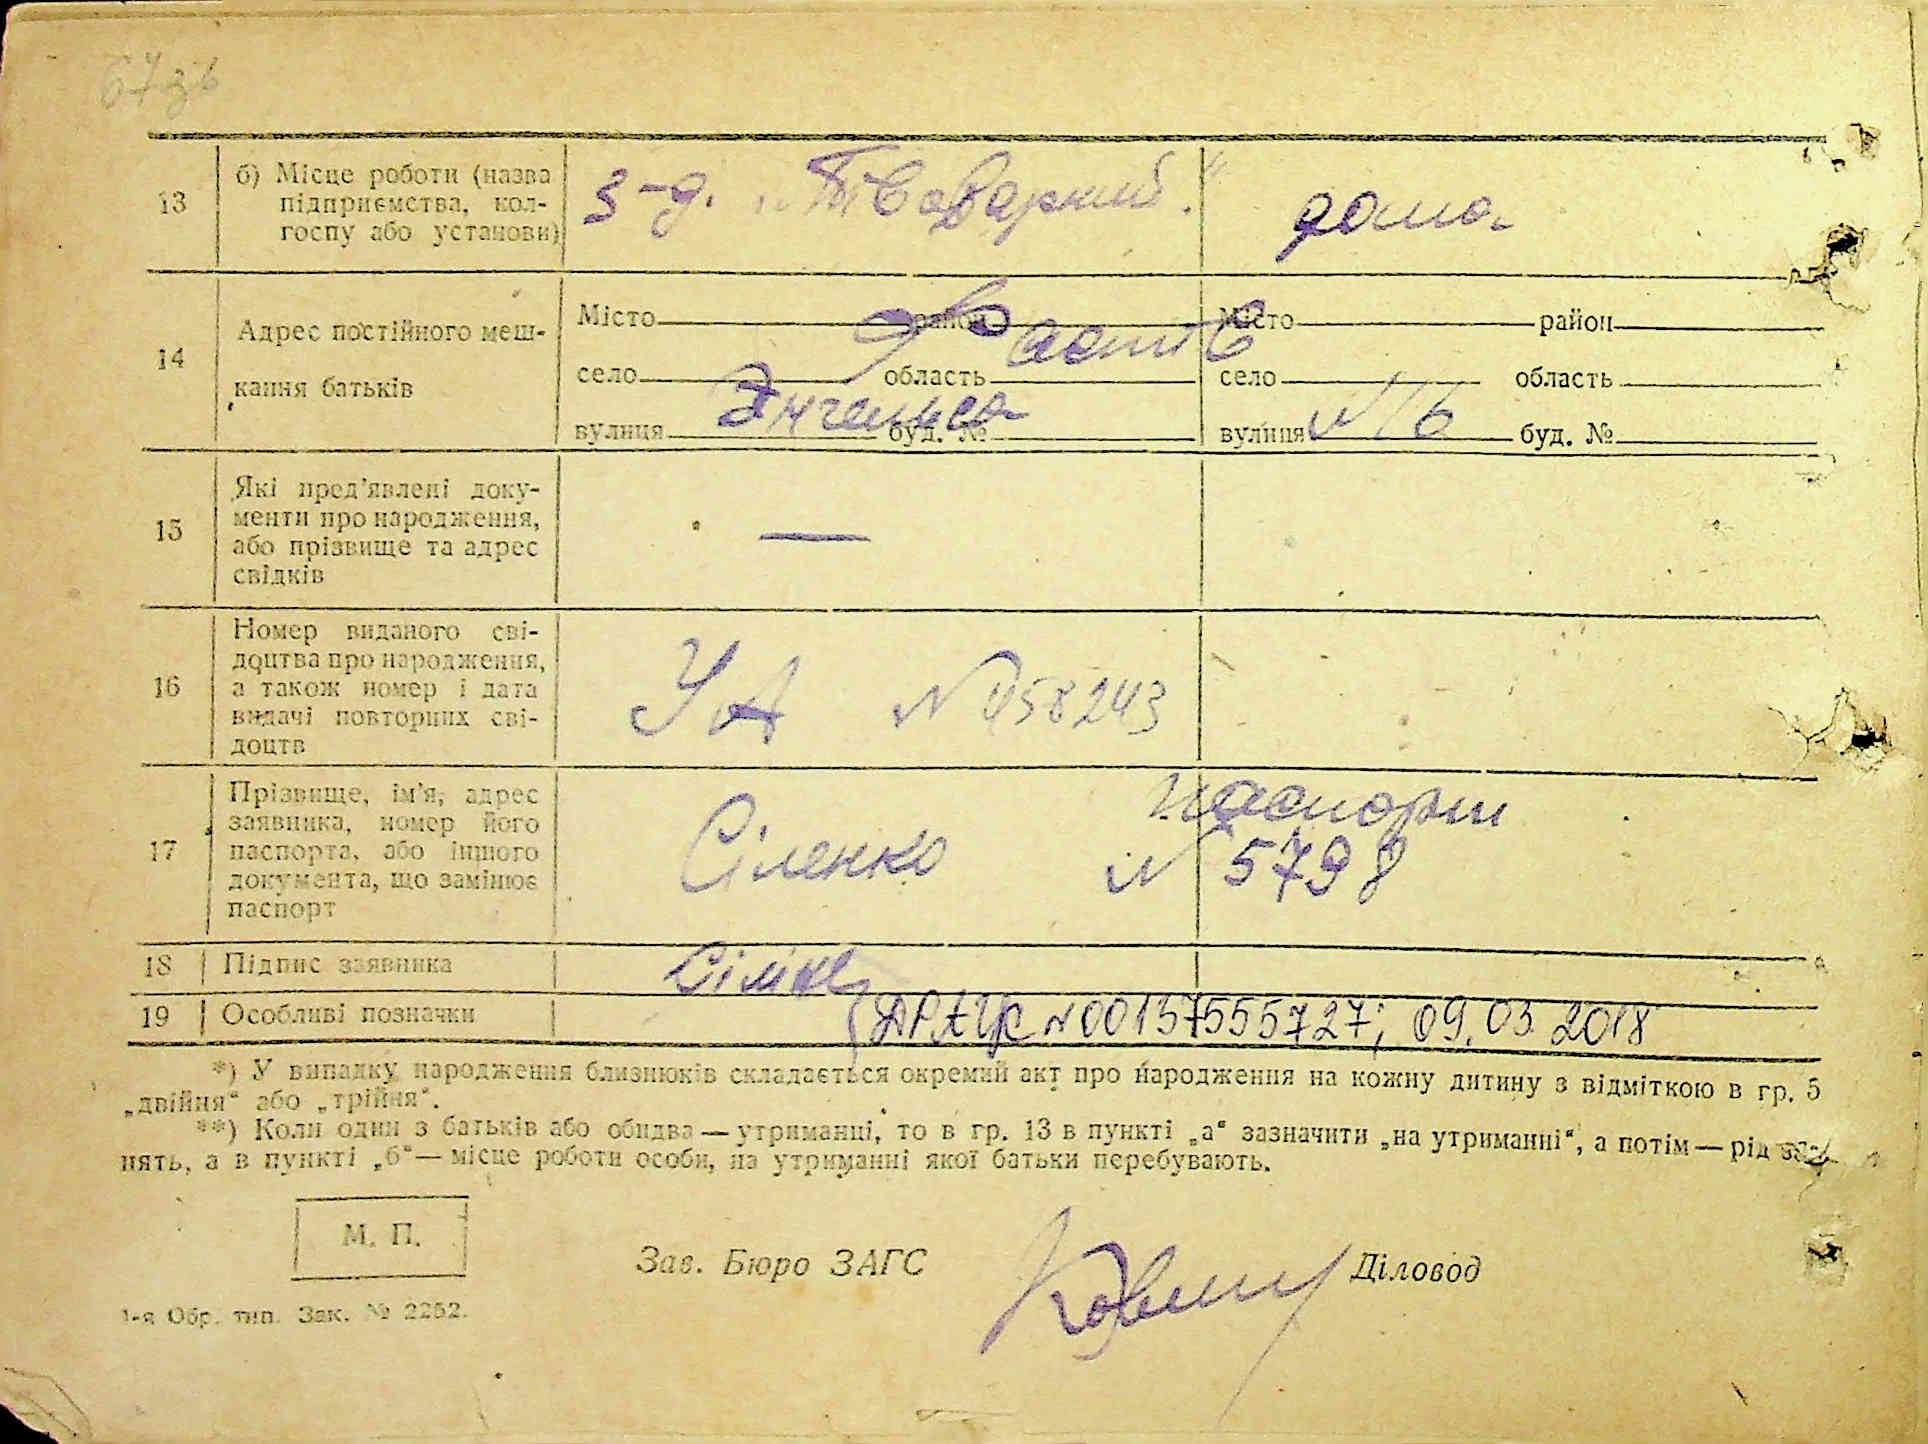 67зв
13
б) Місце роботи (назва
підприємства, кол-
госпу або установи)
з-д. „ "
дома
14
Адрес постійного меш-
кання батьків
Місто район Місто район
Фастів
село область село область
Энгельса №16
вулиця буд. № вулиця буд. №
15
Які пред'явлені доку-
менти про народження,
або прізвище та адрес
свідків
—
16
Номер виданого сві-
доцтва про народження,
а також номер і дата
видачі повторних сві-
доцтв
УА № 458243
17
Прізвище, ім'я, адрес
заявника, номер його
паспорта, або іншого
документа, що замінює
паспорт
Сіленко
паспорт
№ 5798
18 Підпис заявника
19 Особливі позначки
ДРАЦС №00137555727; 09.03.2018
*) У випадку народження близнюків складається окремий акт про народження на кожну дитину з відміткою в гр. 5
„двійня“ або „трійня“.
**) Коли один з батьків або обидва — утриманці, то в гр. 13 в пункті „а“ зазначити „на утриманні“, а потім — рід за-
нять, а в пункті „б“ — місце роботи особи, на утриманні якої батьки перебувають.
М. П.
Зав. Бюро ЗАГС
Діловод
1-я Обр. тип. Зак. № 2252.